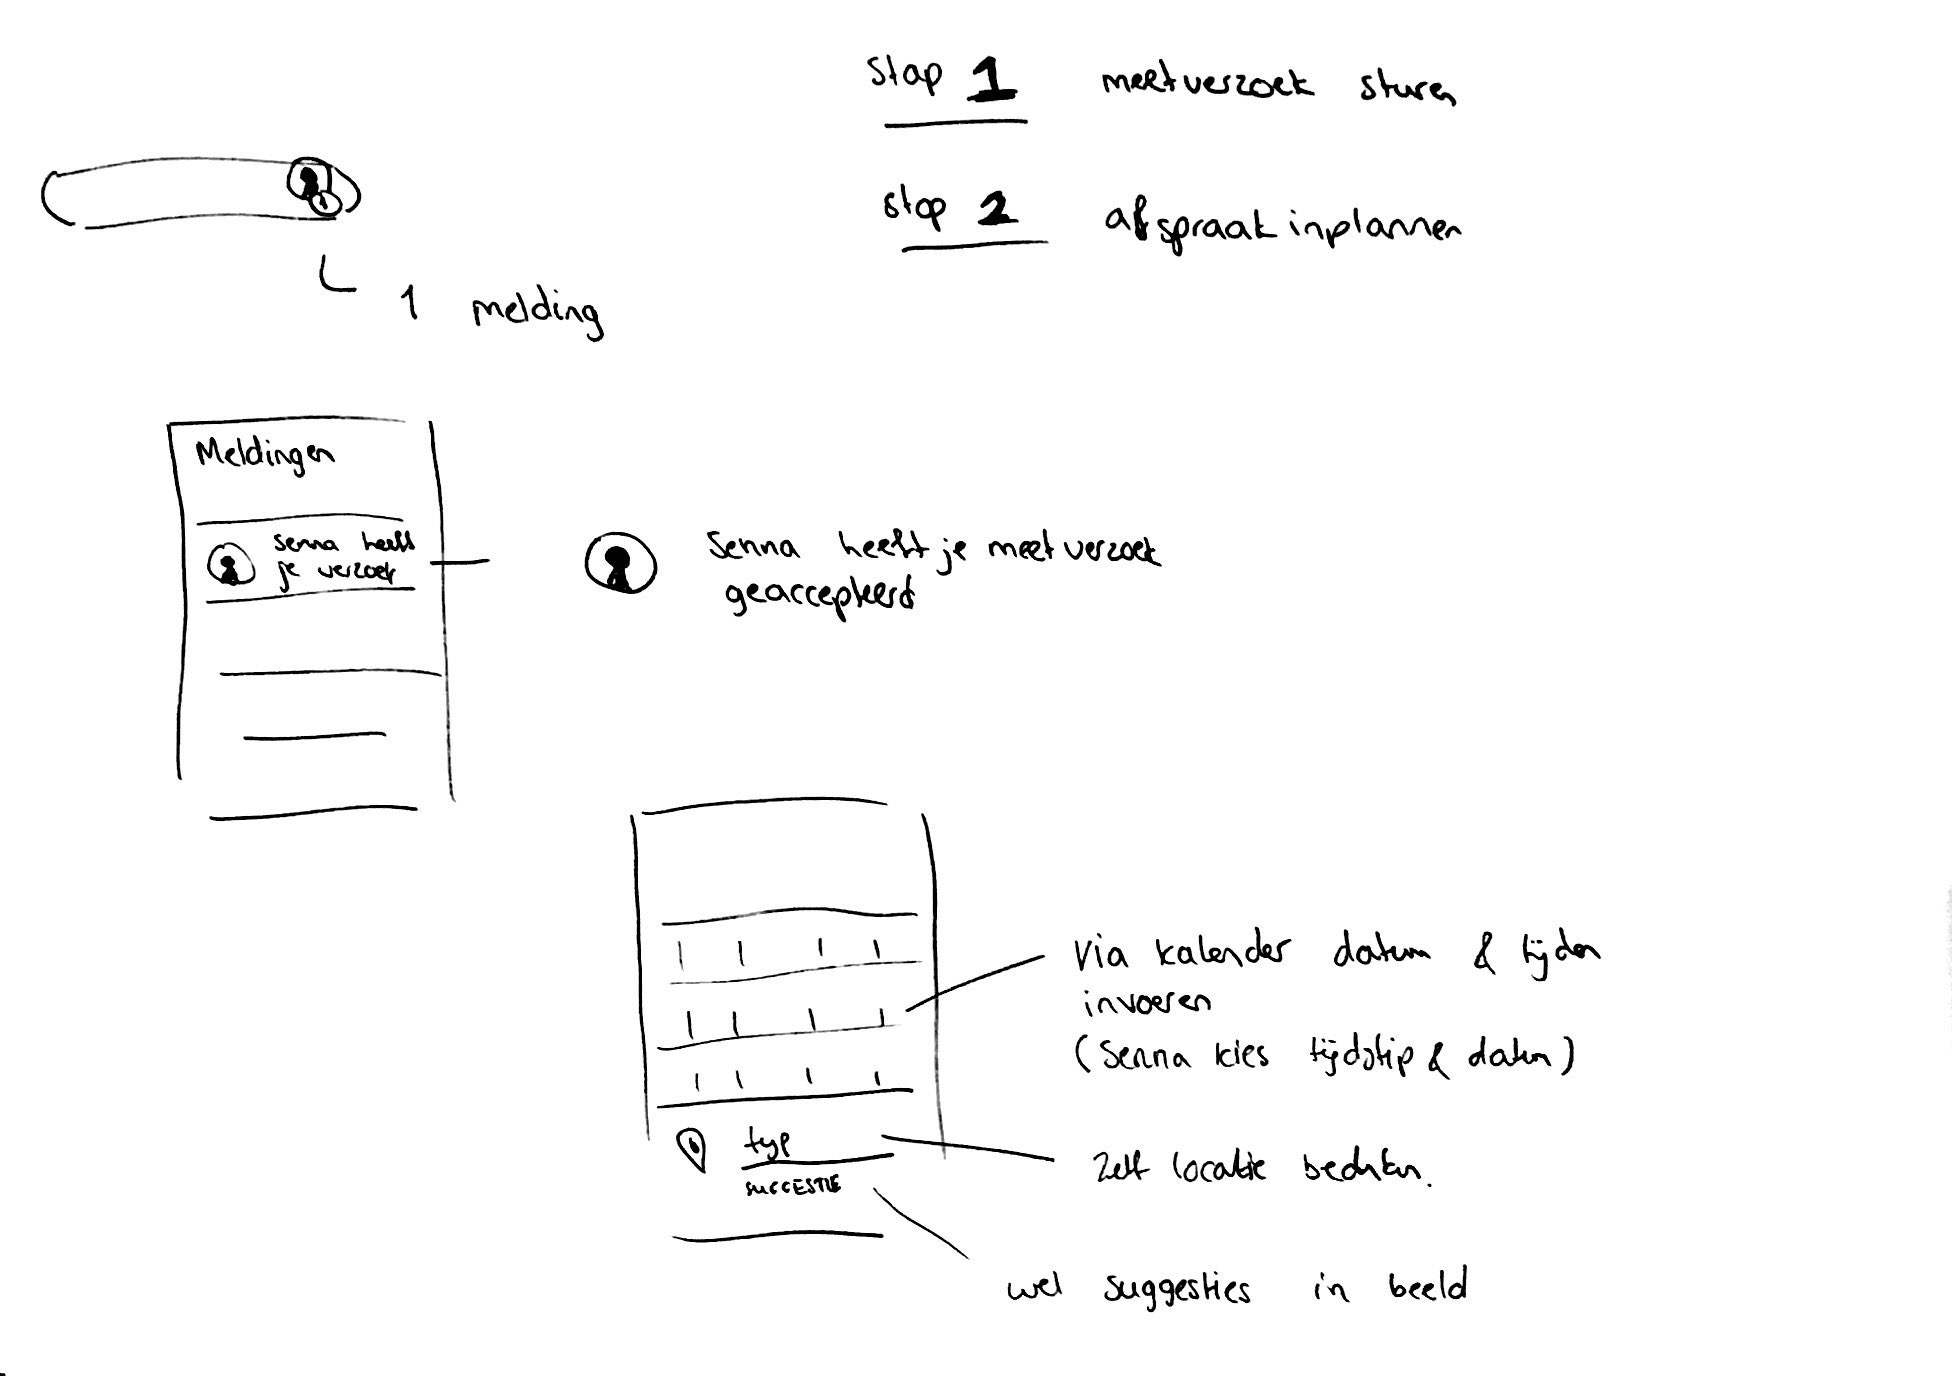 stap 1 meetverzoek sturen
stap 2 afspraak inplannen
1 melding
Meldingen
Senna heeft
je verzoek
Senna heeft je meetverzoek
geaccepteerd
Via kalender datum & tijden
invoeren
(Senna kies tijdstip & datum)
typ
Zelf locatie bedenken.
SUGGESTIE
wel suggesties in beeld